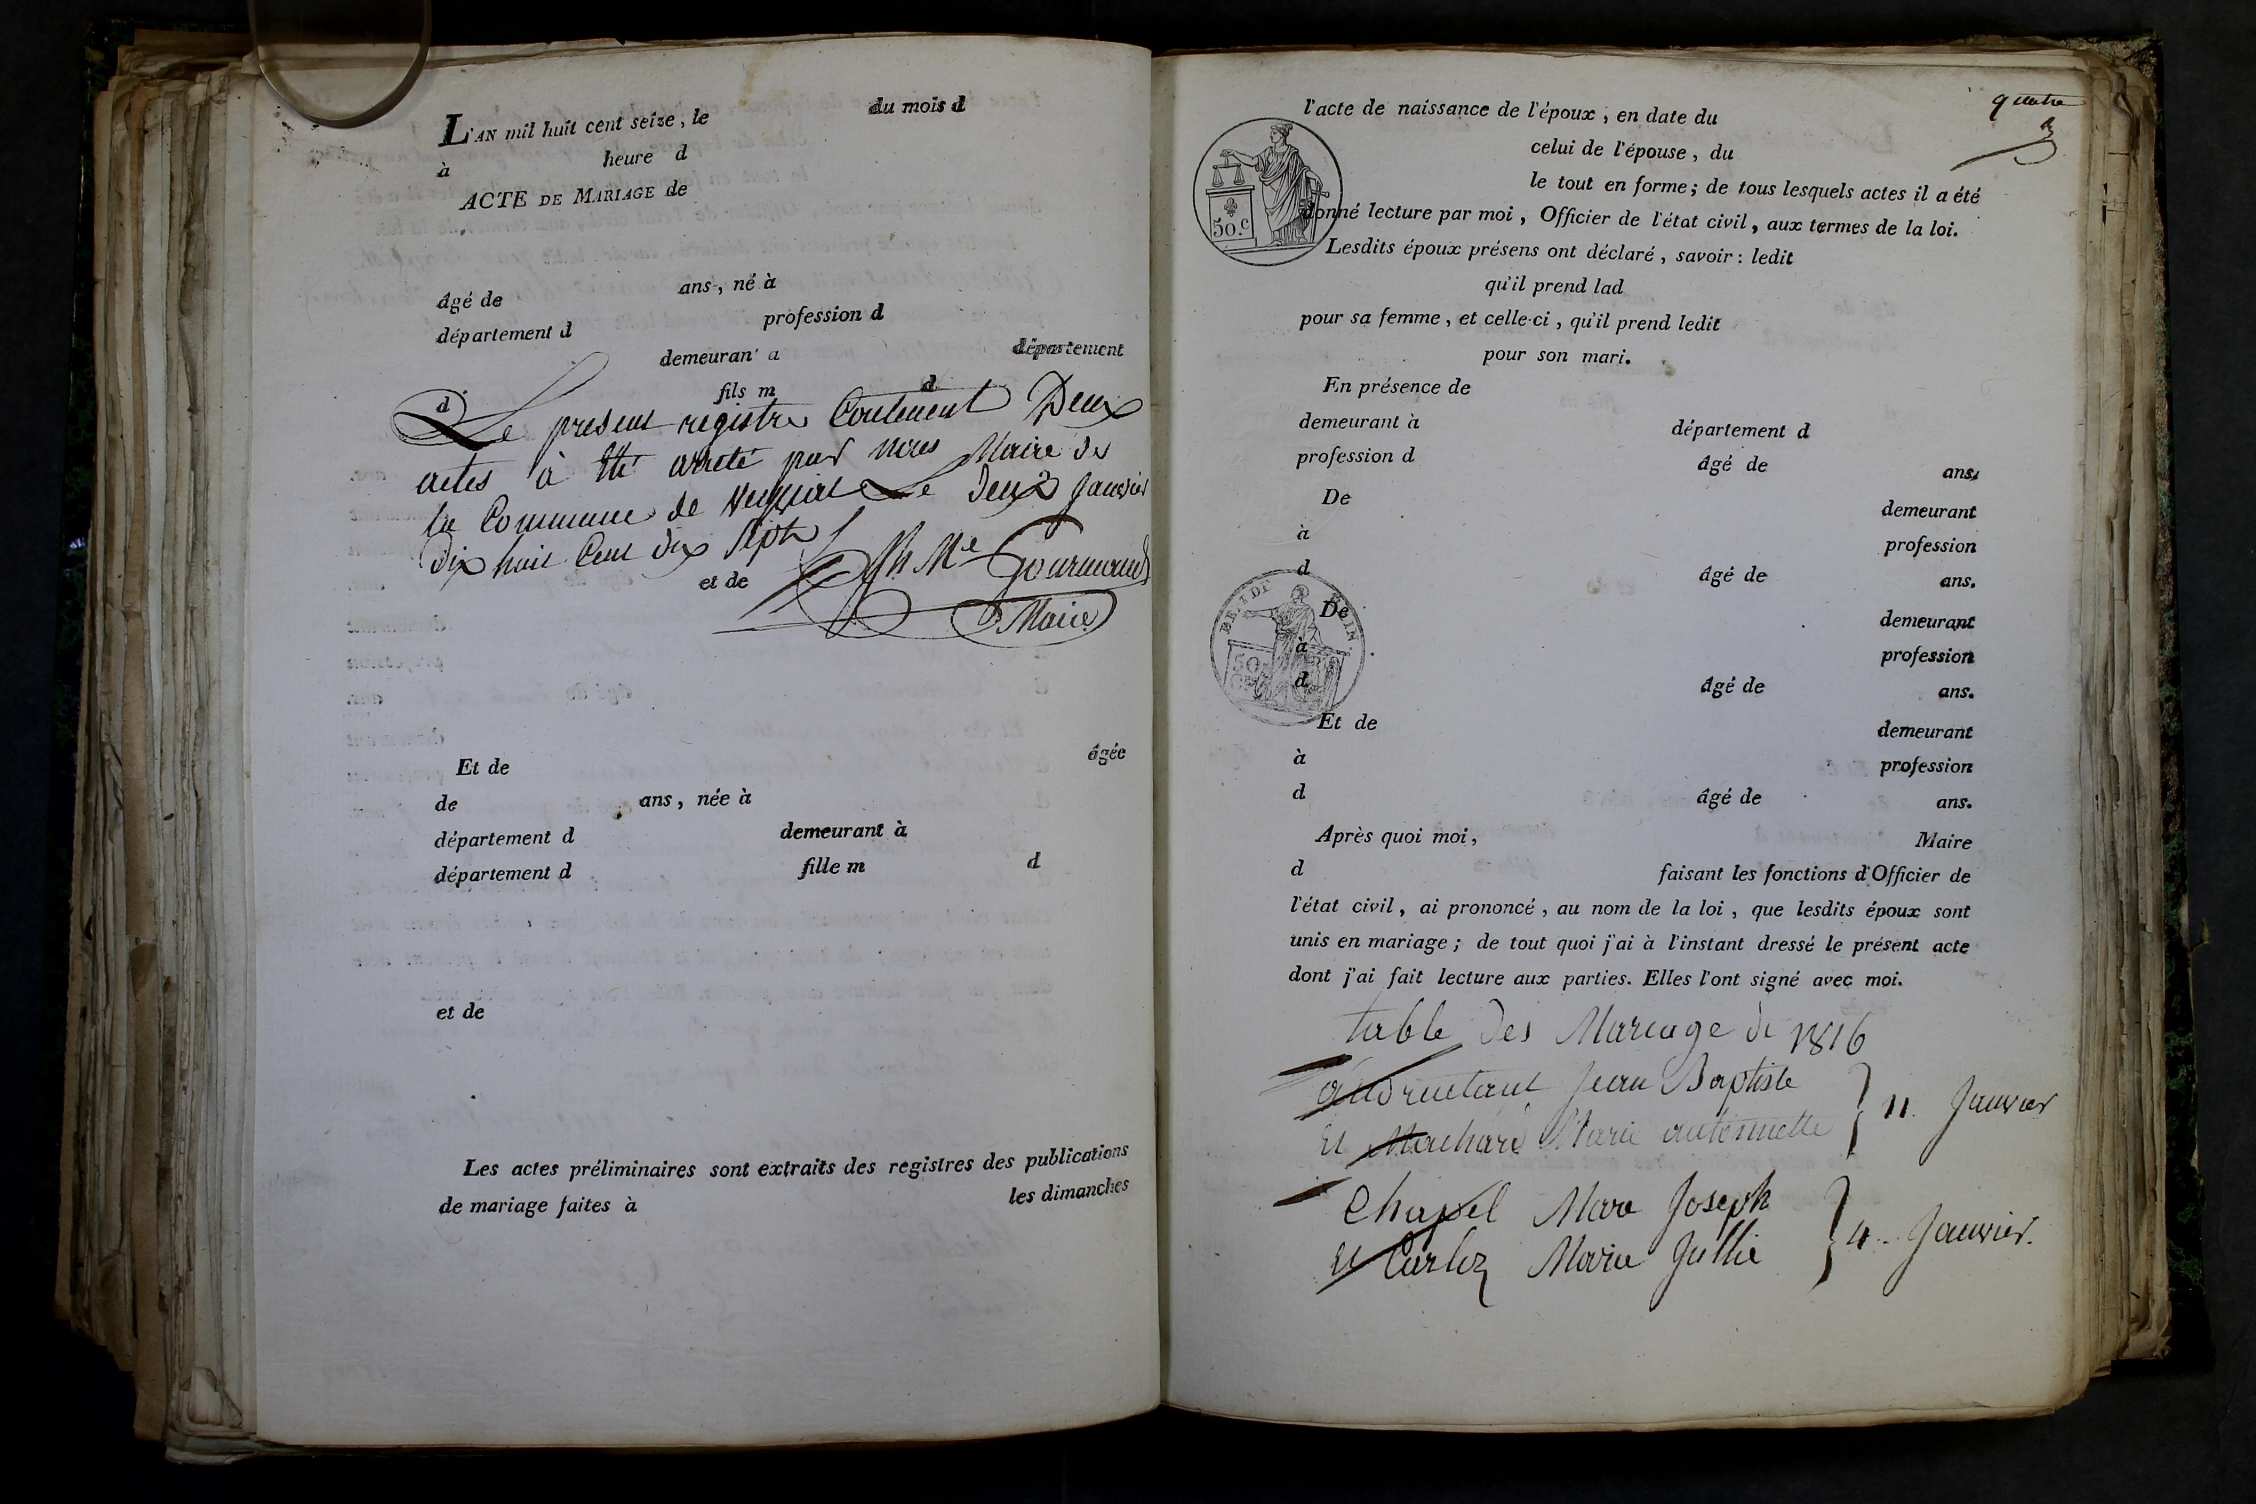 L'AN mil huit cent seize, le du mois d
à heure d
ACTE DE MARIAGE de
âgé de ans, né à
département d profession d
demeuran' a département
d fils m d
Le present registre Contenent Deux
actes à Eté arreté par nous Maire de
la Commune de Le deux janvier
Dix huit Cent dix Sept
et de
Gourmand
Maire
Et de âgée
de ans, née à
département d demeurant à
département d fille m d
et de
Les actes préliminaires sont extraits des registres des publications
de mariage faites à les dimanches
quatre
l'acte de naissance de l'époux, en date du
celui de l'épouse, du
le tout en forme; de tous lesquels actes il a été
donné lecture par moi, Officier de l'état civil, aux termes de la loi.
50.c
Lesdits époux présens ont déclaré, savoir: ledit
qu'il prend lad
pour sa femme, et celle-ci, qu'il prend ledit
pour son mari.
En présence de
demeurant à département d
profession d âgé de ans.
De demeurant
à profession
d âgé de ans.
De demeurant
à profession
d âgé de ans.
50
Et de demeurant
à profession
d âgé de ans.
Après quoi moi, Maire
d faisant les fonctions d'Officier de
l'état civil, ai prononcé, au nom de la loi, que lesdits époux sont
unis en mariage; de tout quoi j'ai à l'instant dressé le présent acte
dont j'ai fait lecture aux parties. Elles l'ont signé avec moi.
table des Mariage de 1816
Jean Baptiste
Et Machard Marie antoinette } 11. Janvier
Chapel Marc Joseph
Et Carloz Marie Jullie } 4.. Janvier.